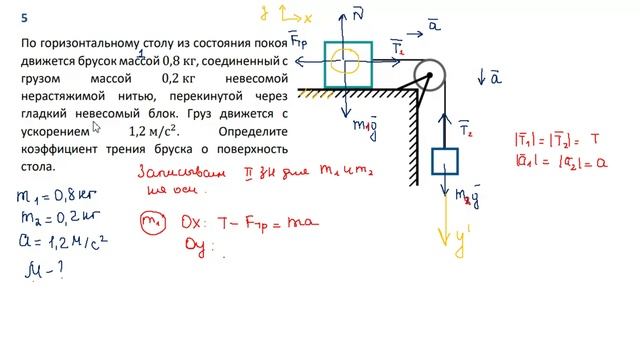 5
По горизонтальному столу из состояния покоя
движется брусок массой 0,8 кг, соединенный с
грузом массой 0,2 кг невесомой
нерастяжимой нитью, перекинутой через
гладкий невесомый блок. Груз движется с
ускорением 1,2 м/с². Определите
коэффициент трения бруска о поверхность
стола.
1
m₁ = 0,8 кг
m₂ = 0,2 кг
a = 1,2 м/с²
μ - ?
Записываем II ЗН для m₁ и m₂
на оси.
m₁ Ox: T - Fтр = ma
Oy:
y x
N
a
Fтр
T₁
m₁g
a
T₂
m₂g
y'
|T₁| = |T₂| = T
|a₁| = |a₂| = a